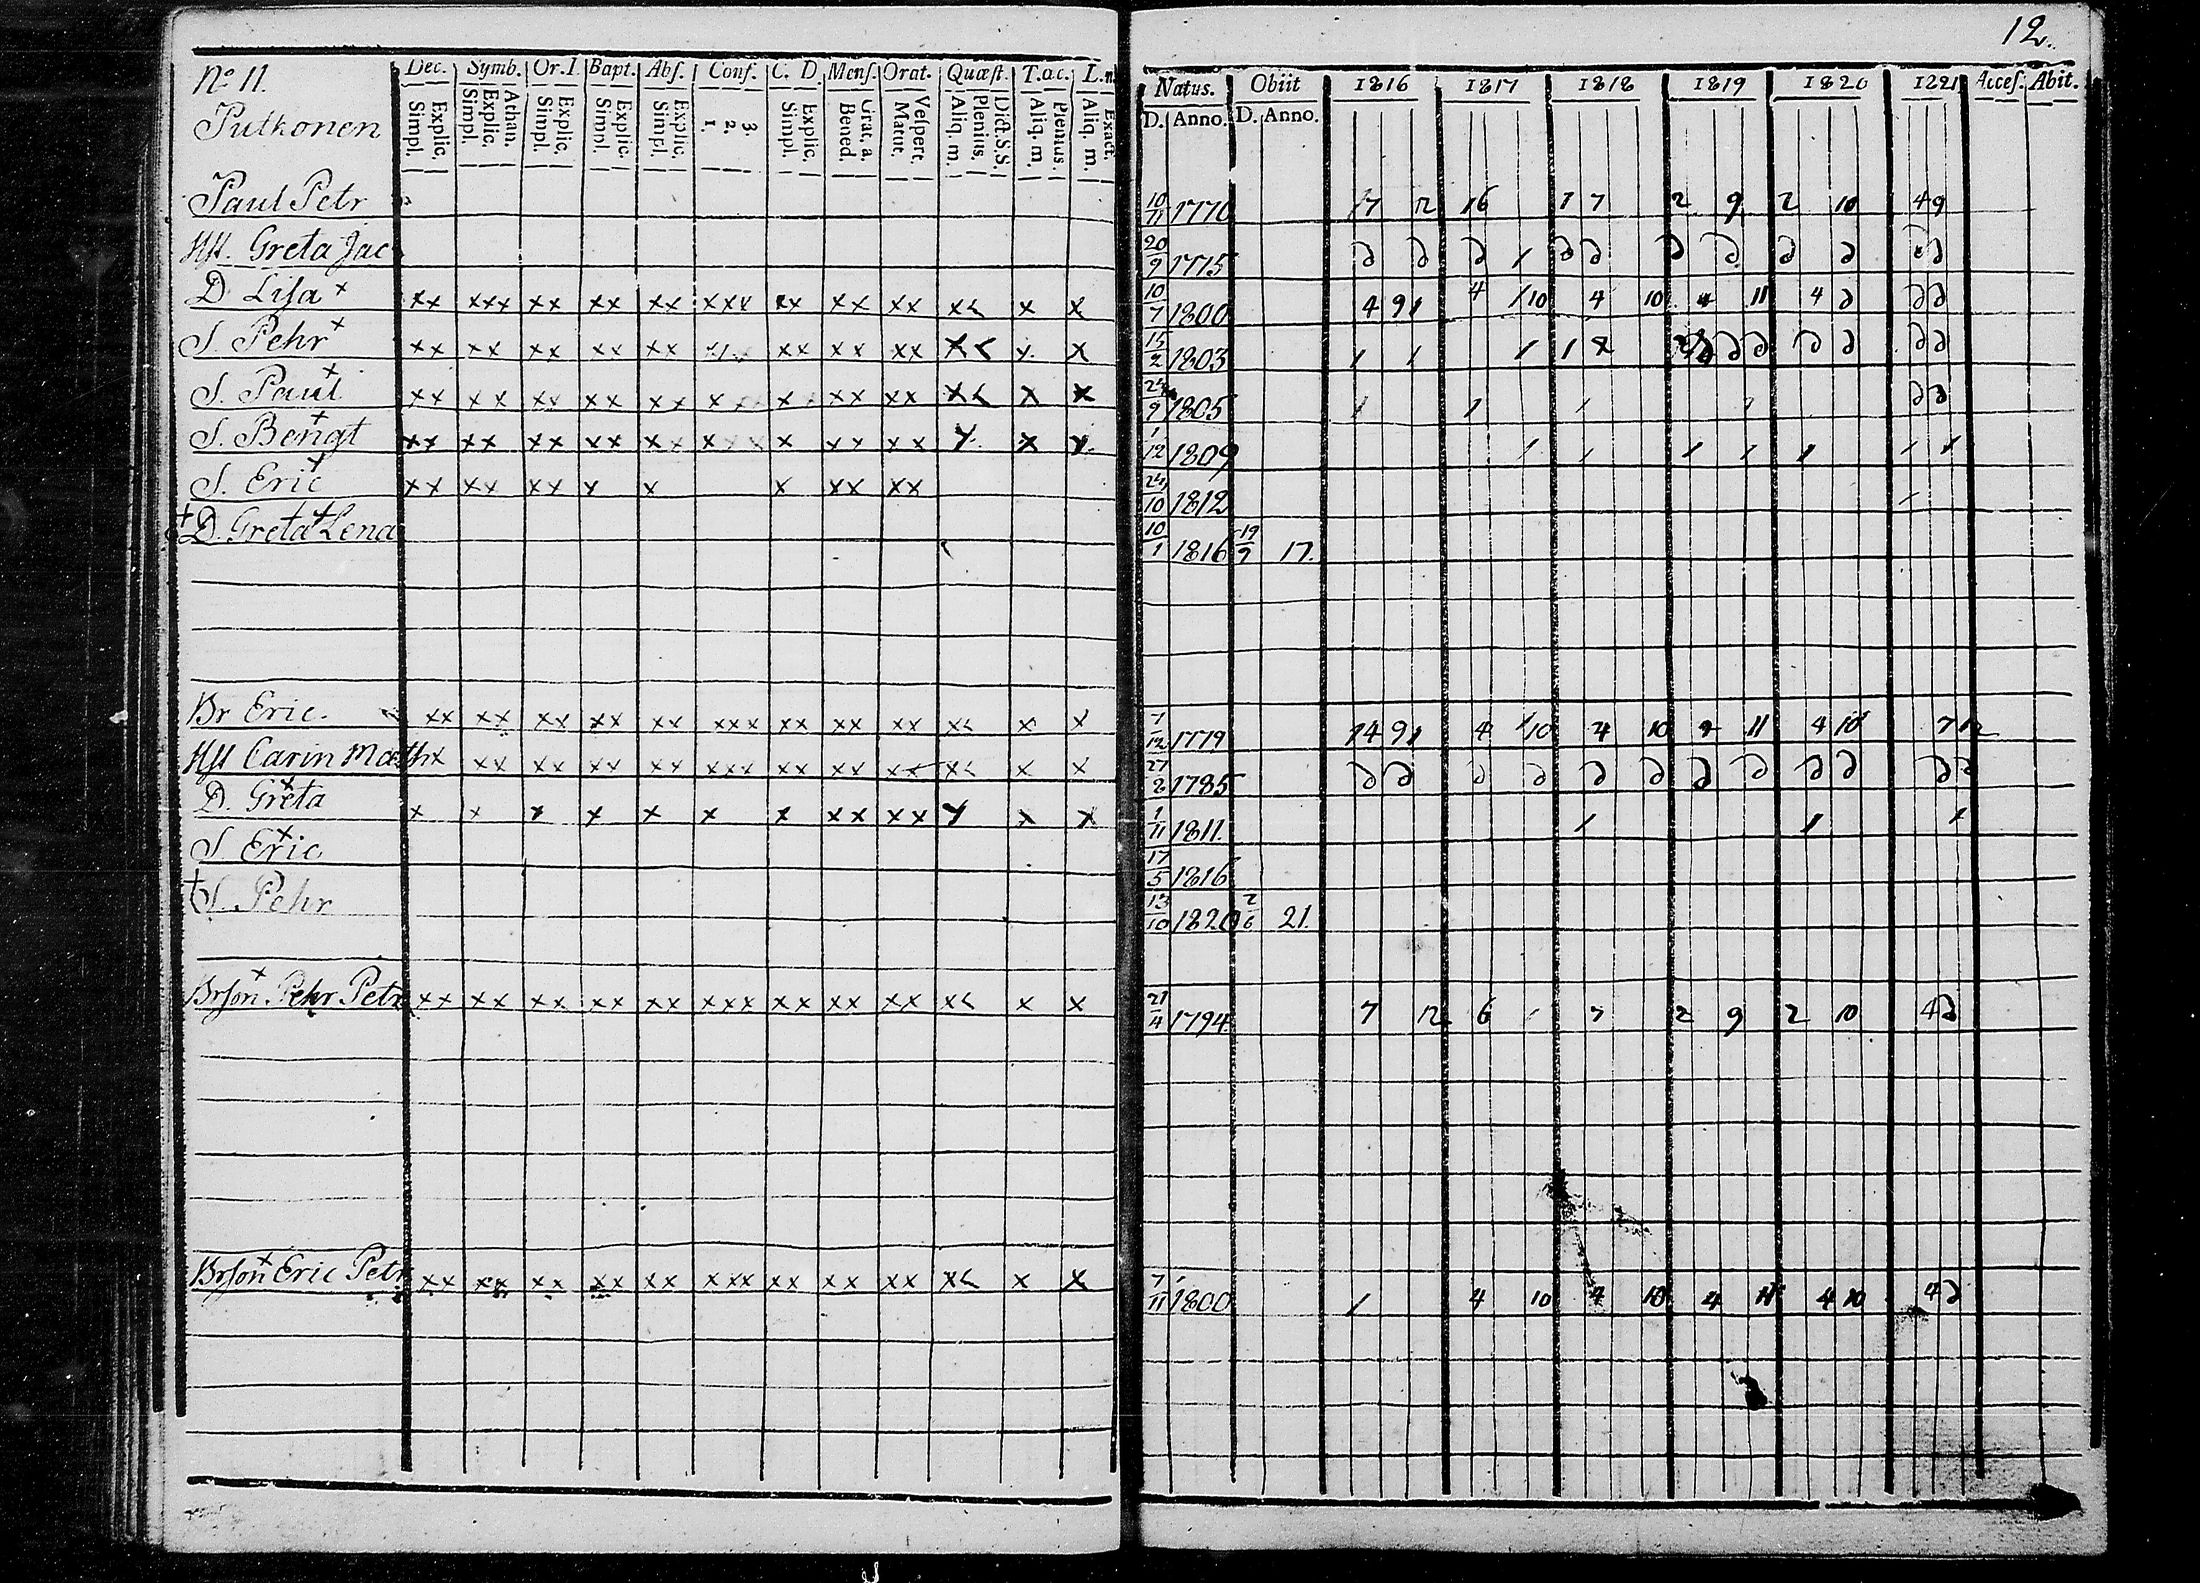 12.
No 11.
Putkonen
Dec. Symb. Or. I. Bapt. Abſ. Conf. C. D. Menſ. Orat. Quæſt. T.œc. L.n.
Explic. Simpl. Athan. Explic. Simpl. Explic. Simpl. Explic. Simpl. Explic. Simpl. 3. 2. 1. Explic. Simpl. Grat. a. Bened. Veſpert. Matut. Dict.S.S. Plenius. Aliq. m. Plenius. Aliq. m. Exact. Aliq. m.
Natus. Obiit 1816 1817 1818 1819 1820 1821 Acceſ. Abit.
D. Anno. D. Anno.
Paul Petr 10/11 1770 17 12 16 1 7 2 9 2 10 4 9
Hſt. Greta Jac 20/9 1775 д д д / д д д д д д д д
D Liſa x xx xxx xx xx xx xxx xx xx xx x< x x 10/7 1800 4 9 1 4 / 10 4 10 4 11 4 д д д
S. Pehr x xx xx xx xx xx xx xx xx x< x x 15/2 1803 / / / 1 д д д д д д
S. Paul x xx xx xx xx xx x x xx xx x< x x 24/9 1805 / / / / д д
S. Bengt x xx xx xx xx xx x x xx xx x x x 1/12 1809 / / / / / / /
S. Eric x xx xx xx x x x xx xx 24/10 1812 /
+ D. Greta x Lena 10/1 1816 19/9 17.
Br Eric. xx xx xx xx xx xxx xx xx xx x< x x 7/12 1779 14 9 1 4 / 10 4 10 9 11 4 10 7 12
Hſt Carin Math x xx xx xx xx xxx xx xx xx x< x x 27/2 1785 д д д д д д д д д д д д
D. Greta x x x x x x x x xx xx x x x 1/11 1811. / / /
S Eric x 17/5 1816
+ S. Pehr 13/10 1820 2/6 21.
Brſon x Pehr Petr xx xx xx xx xx xxx xx xx xx x< x x 21/4 1794 7 12 6 / 7 2 9 2 10 4 д
Brſon x Eric Petr xx xx xx xx xx xxx xx xx xx x< x x 7/11 1800 / 4 10 4 10 4 11 4 10 4 д